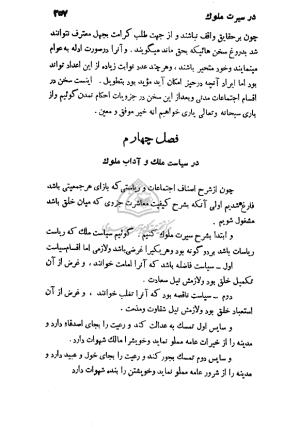 در سیرت ملوک ۳۵۷
چون برحقایق واقف نباشند و از جهت طلب کرامت بجهل معترف نتوانند
شد بدروغ سخن هائیکه بحق ماند میگویند. و آنرا درصورت ادله به عوام
مینمایند وخود متحیر باشند، وهرچند عدد نوابت زیاده از این اعداد تواند
بود اما ایراد آنچه درحیز امکان آید مؤید بود بتطویل. اینست سخن در
اقسام اجتماعات مدنی وبعداز این سخن در جزویات احکام تمدن گوئیم واز
یاری سبحانه وتعالی یاری خواهیم انه خیر موفق و معین.
فصل چهارم
در سیاست ملک و آداب ملوک
چون ازشرح اصناف اجتماعات و ریاستی که بازای هرجمعیتی باشد
فارغ شدیم اولی آنکه بشرح کیفیت معاشرت جزوی که میان خلق باشد
مشغول شویم.
و ابتدا بشرح سیرت ملوک کنیم گوئیم سیاست ملک که ریاست
ریاسات باشد بردو گونه بود وهریکیرا غرضی باشد ولازمی اما اقسام سیاست
اول ــ سیاست فاضله باشد که آنرا امامت خوانند، و غرض از آن
تکمیل خلق بود ولازمش نیل سعادت.
دوم ــ سیاست ناقصه بود که آنرا تغلب خوانند، و غرض از آن
استعباد خلق بود ولازمش نیل شقاوت ومذمت.
و سایس اول تمسک به عدالت کند و رعیت را بجای اصدقاء دارد و
مدینه را از خیرات عامه مملو نماید وخویشرا مالک شهوات دارد.
و سایس دوم تمسک بجور کند و رعیت را بجای خول و عبید دارد و
مدینه را از شرور عامه مملو نماید وخویشتن را بنده شهوات دارد